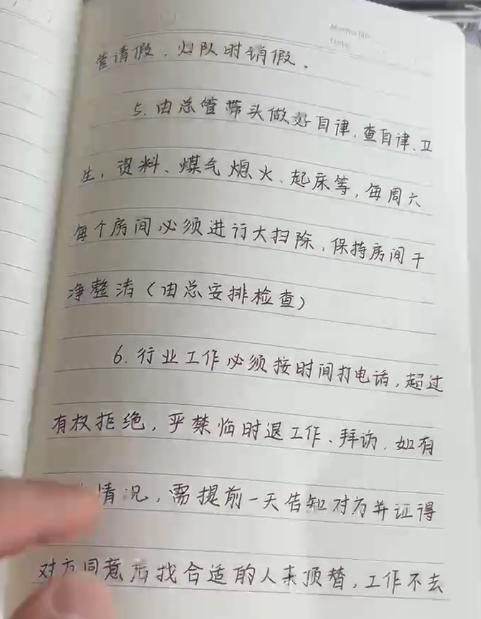 管请假，归队时销假。
5.由总管带头做好自律、查自律、卫
生，资料、煤气熄火、起床等，每周六
每个房间必须进行大扫除，保持房间干
净整洁（由总安排检查）
6.行业工作必须按时间打电话，超过
有权拒绝，严禁临时退工作、拜访，如有
情况，需提前一天告知对方并证得
对方同意后找合适的人来顶替，工作不去